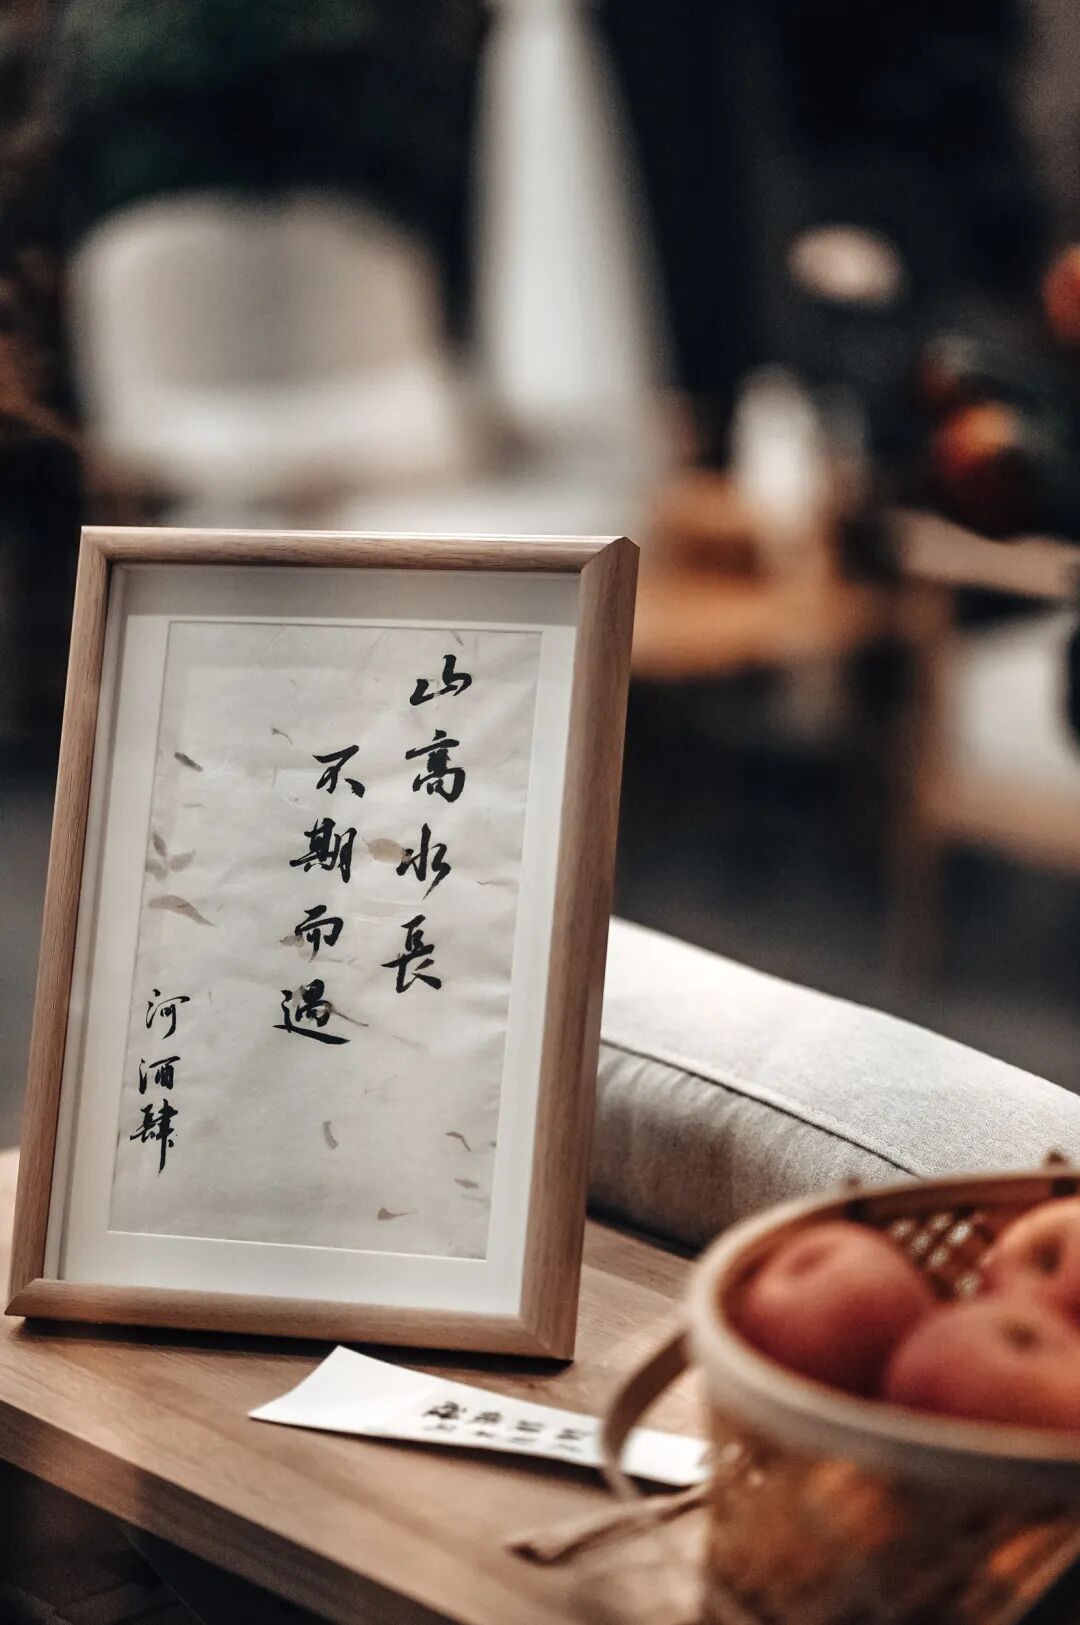 山高水長
不期而遇
河酒肆